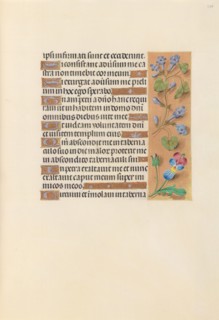 ipsi infirmati sunt et ceciderunt.
Si consistant adversum me ca
stra non timebit cor meum.
Si exurgat adversum me preli
um in hoc ego sperabo.
Unam petii a dño hanc requi
ram ut inhabitem in domo dñi
omnibus diebus vite mee.
Ut videam voluntatem dñi
et visitem templum eius.
Qm̃ abscondit me in taberna
culo suo in die maloꝝ protexit me
in abscondito tabernaculi sui.
In petra exaltavit me et nunc
exaltavit caput meum super ini
micos meos.
Circuivi et imolavi in taberna